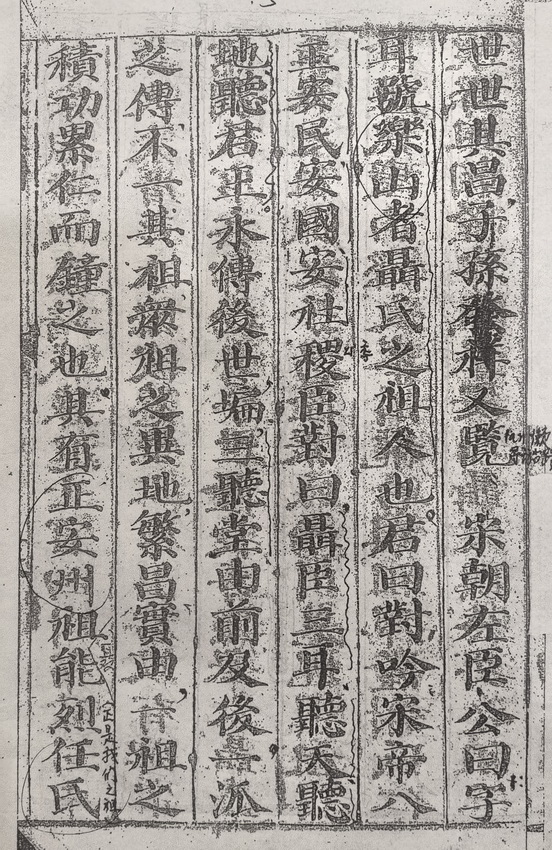 世世其昌子孫發祥又覽宋朝左臣公曰字
耳號樂山者聶氏之祖人也君曰對吟宋帝八
王安民安國安社稷臣對曰聶臣三耳聽天聽
地聽君王永傳後世埨三聽堂由前及後
之傳不一其祖蔡祖之異地繁昌實由祖之
積功累仁而鐘之也其有正安州祖能烈任氏
正是我们之祖